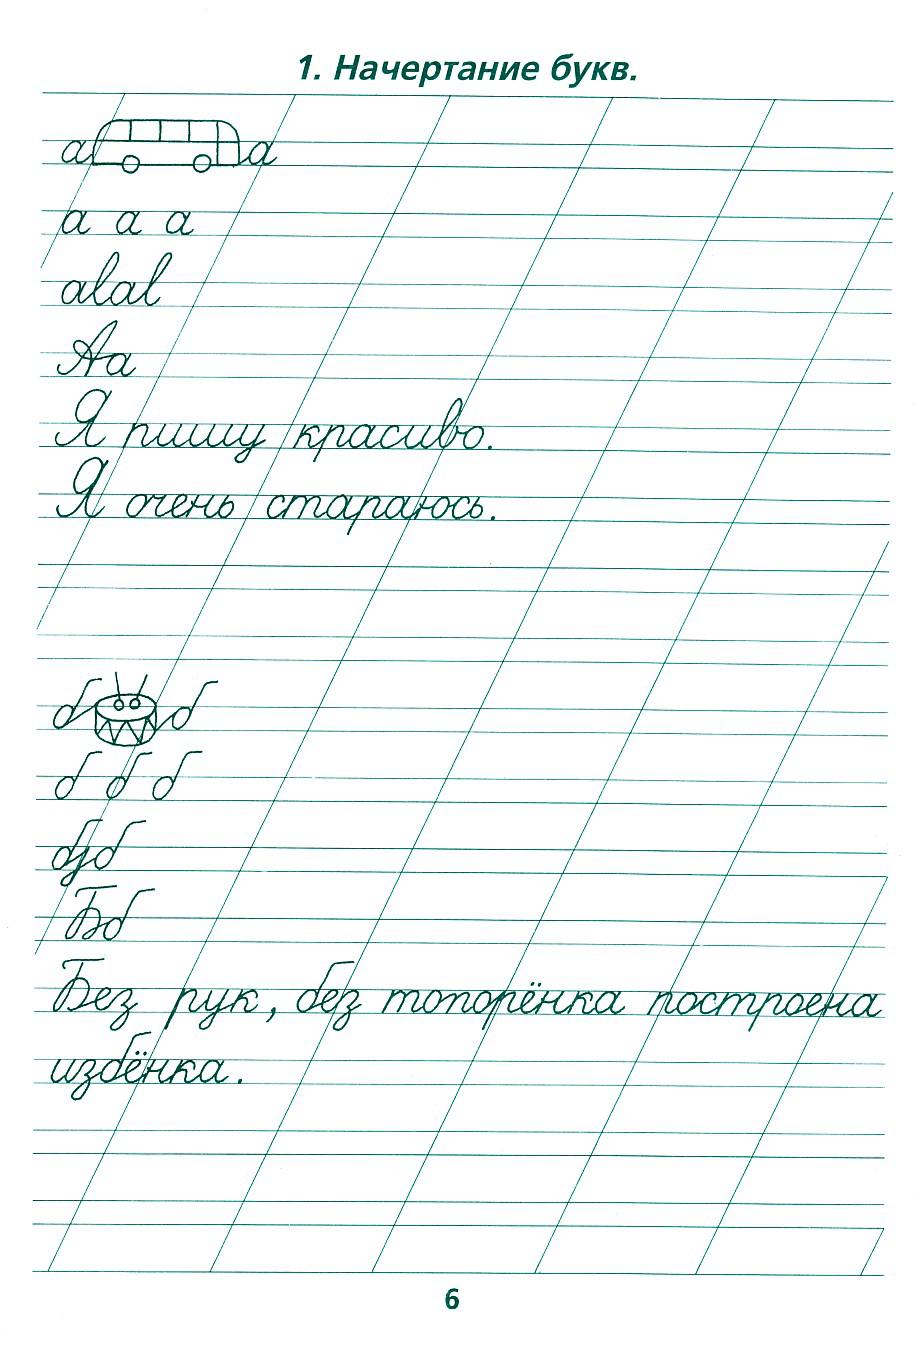 1. Начертание букв.
а а
а а а
авав
Аа
Я пишу красиво.
Я очень стараюсь.
б б
б б б
бдб
Бб
Без рук, без топорёнка построена
избёнка.
6